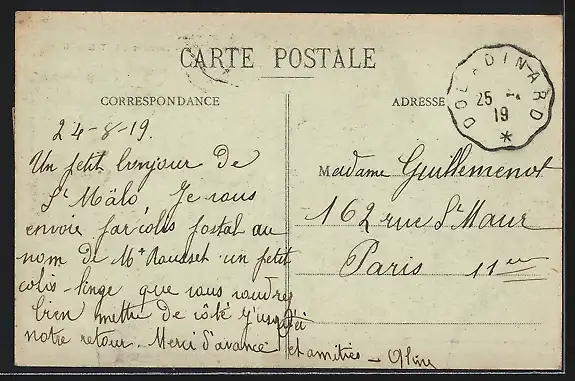 CARTE POSTALE
CORRESPONDANCE
24-8-19.
Un petit bonjour de
St Mâlo, Je vous
envoie par colis postal au
nom de Mr Rousset un petit
colis-linge que vous voudrez
bien mettre de côté j'usqu'ici
notre retour. Merci d'avance
et amitiés -
ADRESSE
DOL - DINARD
25
19
*
Madame Guillemenot
162 rue St Maur
Paris 11